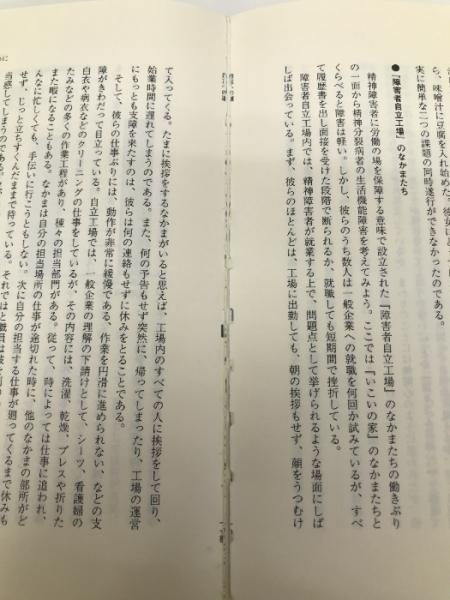 ら、味噌汁に豆腐を入れ始めた。
実に簡単な二つの課題の同時遂行ができなかったのである。
●『障害者自立工場』のなかまたち
精神障害者に労働の場を保障する意味で設立された『障害者自立工場』のなかまたちの働きぶり
の一面から精神分裂病者の生活機能障害を考えてみよう。ここでは『いこいの家』のなかまたちと
くらべると障害は軽い。しかし、彼らのうち数人は一般企業への就職を何回か試みているが、すべ
て履歴書を出し面接を受けた段階で断られるか、就職しても短期間で挫折している。
障害者自立工場内では、精神障害者が就業する上で、問題点として挙げられるような場面にしば
しば出会っている。まず、彼らのほとんどは、工場に出勤しても、朝の挨拶もせず、顔をうつむけ
て入ってくる。たまに挨拶をするなかまがいると思えば、工場内のすべての人に挨拶をして回り、
始業時間に遅れてしまうのである。また、何の予告もせず突然に、帰ってしまったり、工場の運営
にもっとも支障を来たすのは、彼らは何の連絡もせずに休みをとることである。
そして、彼らの仕事ぶりには、動作が非常に緩慢である、作業を円滑に進められない、などの支
障がきわだって目立っている。自立工場では、一般企業の理解の下請けとして、シーツ、看護婦の
白衣や病衣などのクリーニングの仕事をしているが、その内容には、洗濯、乾燥、プレスや折りた
たみなどの多くの作業工程があり、種々の担当部門がある。従って、時によっては仕事に追われ、
また暇になることもある。なかまは自分の担当場所の仕事が途切れた時に、他のなかまの部所がど
んなに忙しくても、手伝いに行こうともしない。次に自分の担当する仕事が廻ってくるまで休みも
せず、じっと立ちすくんだままで待っている。それでは
当惑してしまうのである。